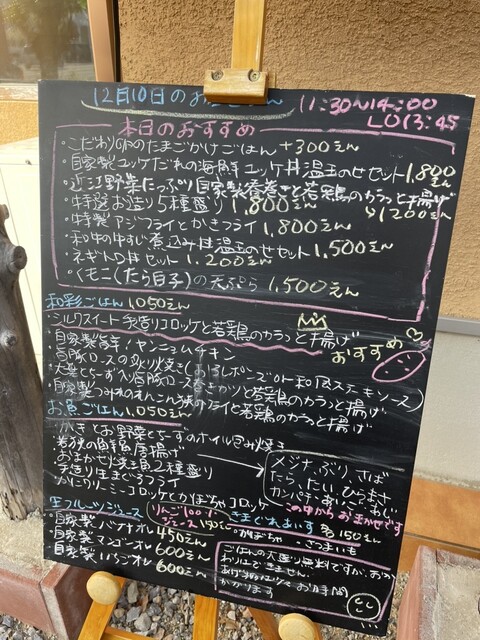 12月10日のお
11:30〜14:00
LO13:45
本日のおすすめ
・こだわり卵のたまごかけごはん +300えん
・自家製ユッケだれの海鮮ユッケ丼温玉のせセット 1,800えん
・近江野菜たっぷり自家製春巻きと若鶏のカラっと揚げ 1200えん
・特選お造り5種盛り 1,800えん
・特製アジフライとかきフライ 1,800えん
・和牛の牛すじ煮込み丼温玉のせセット 1,500えん
・ネギトロ丼セット 1,200えん
・くモコ(たら白子)の天ぷら 1,500えん
和彩ごはん 1,050えん
・シルクスイート手造りコロッケと若鶏のカラっと揚げ
おすすめ
・自家製旨辛!ヤンニョムチキン
・肩豚ロースの炙り焼き(おろしポンズor和風スタミナソース)
・大葉とちーず入り肩豚ロースまきかつと若鶏のカラっと揚げ
・自家製つみれのれんこん挟みフライと若鶏のカラっと揚げ
お魚ごはん 1,050えん
・かきとお野菜とちーずのホイル包み焼き
・若狭の鮮魚唐揚げ
・おまかせ焼き魚2種盛り
・手造りまぐろフライ
・かにクリーミーコロッケとかぼちゃコロッケ
メジナ、ぶり、さば
たら、たい、ひらまさ
カンパチ、あじ
この中からおまかせです
生フルーツジュース
りんご100%ジュース 150えん
きまぐれあいす 各150えん
・かぼちゃ ・さつまいも
・自家製バナナオレ 450えん
・自家製マンゴーオレ 600えん
・自家製いちごオレ 600えん
ごはんの大盛り無料ですが、おかわりはできません。
お時間かかります